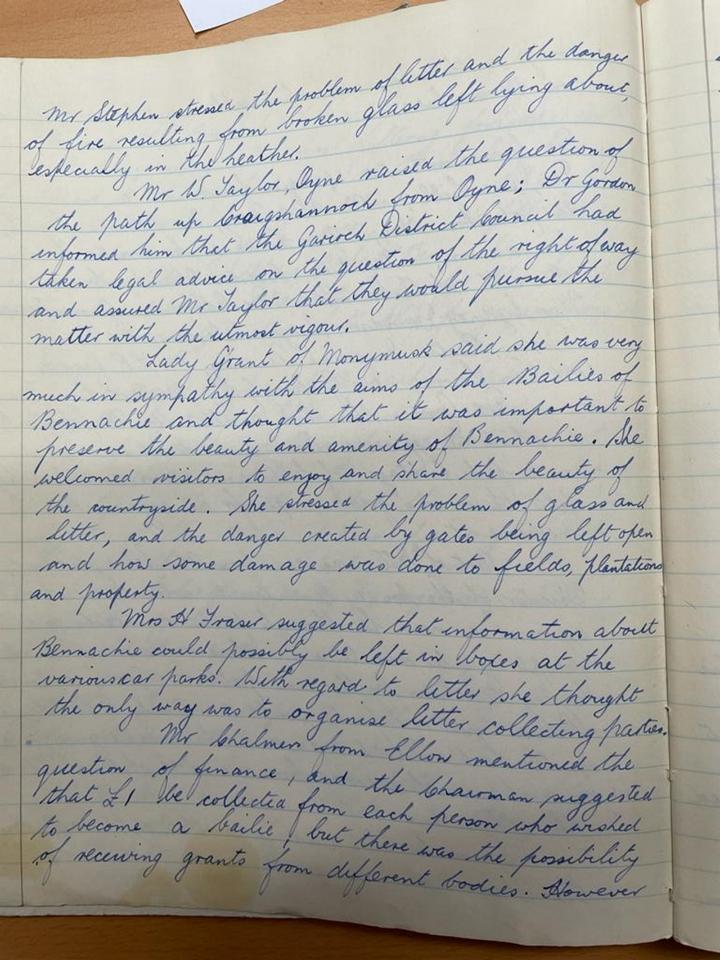 Mr Stephen stressed the problem of litter and the danger
of fire resulting from broken glass left lying about,
especially in the heather.
Mr W. Taylor, Oyne raised the question of
the path up Craigshannoch from Oyne; Dr Gordon
informed him that the Garioch District Council had
taken legal advice on the question of the right of way
and assured Mr Taylor that they would pursue the
matter with the utmost vigour.
Lady Grant of Monymusk said she was very
much in sympathy with the aims of the Bailies of
Bennachie and thought that it was important to
preserve the beauty and amenity of Bennachie. She
welcomed visitors to enjoy and share the beauty of
the countryside. She stressed the problem of glass and
litter, and the danger created by gates being left open
and how some damage was done to fields, plantations
and property.
Mrs H Fraser suggested that information about
Bennachie could possibly be left in boxes at the
various car parks. With regard to litter she thought
the only way was to organise litter collecting parties.
Mr Chalmers from Ellon mentioned the
question of finance, and the Chairman suggested
that £1 be collected from each person who wished
to become a bailie, but there was the possibility
of receiving grants from different bodies. However